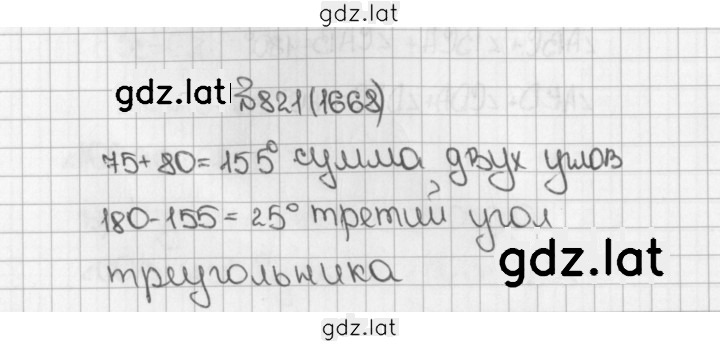 gdz.lat
gdz.lat №821(1668)
75+80=155° сумма двух углов
180-155=25° третий угол
треугольника
gdz.lat
gdz.lat